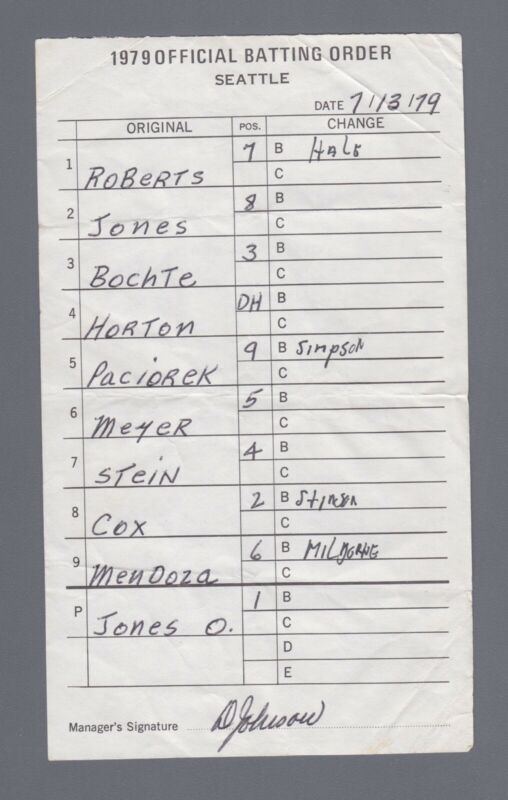 1979 OFFICIAL BATTING ORDER
SEATTLE
DATE 7/13/79
ORIGINAL POS. CHANGE
1 ROBERTS 7 B HALE
C
2 Jones 8 B
C
3 BOCHTE 3 B
C
4 HORTON DH B
C
5 PACIOREK 9 B Simpson
C
6 MEYER 5 B
C
7 STEIN 4 B
C
8 COX 2 B Stinson
C
9 MENDOZA 6 B MILBORNE
C
P Jones O. 1 B
C
D
E
Manager's Signature D Johnson